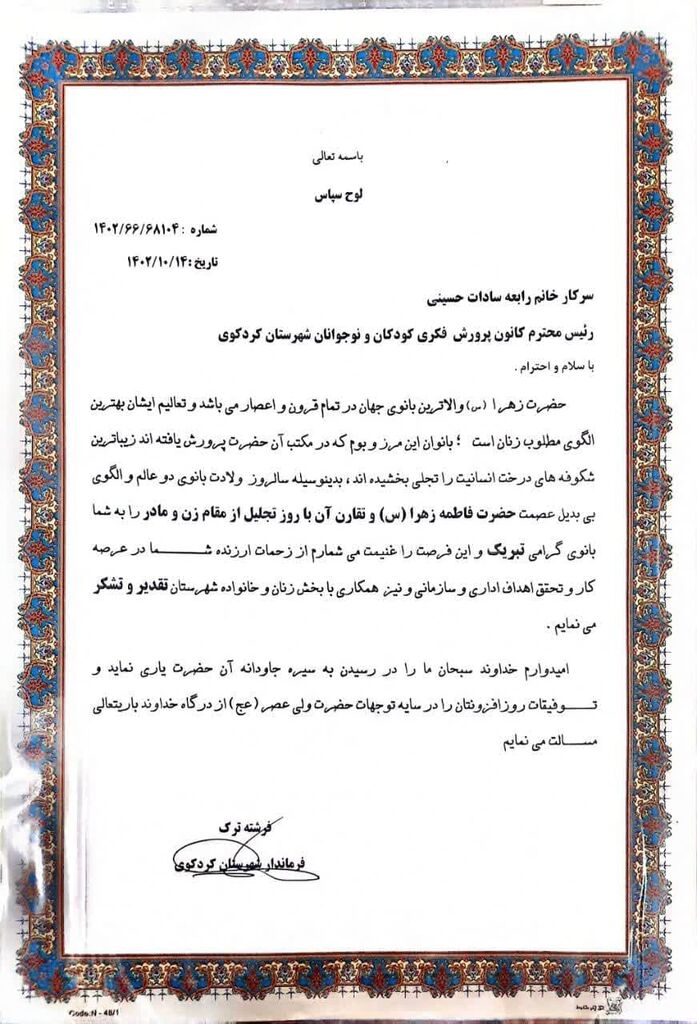 باسمه تعالی
لوح سپاس
شماره : ۱۴۰۲/۶۶/۶۸۱۰۴
تاریخ :۱۴۰۲/۱۰/۱۴
سرکار خانم رابعه سادات حسینی
رئیس محترم کانون پرورش فکری کودکان و نوجوانان شهرستان کردکوی
با سلام و احترام .
حضرت زهرا (س) والاترین بانوی جهان در تمام قرون و اعصار می باشد و تعالیم ایشان بهترین
الگوی مطلوب زنان است ؛ بانوان این مرز و بوم که در مکتب آن حضرت پرورش یافته اند زیباترین
شکوفه های درخت انسانیت را تجلی بخشیده اند ، بدینوسیله سالروز ولادت بانوی دو عالم و الگوی
بی بدیل عصمت حضرت فاطمه زهرا (س) و تقارن آن با روز تجلیل از مقام زن و مادر را به شما
بانوی گرامی تبریک و این فرصت را غنیمت می شمارم از زحمات ارزنده شـــــما در عرصه
کار و تحقق اهداف اداری و سازمانی و نیز همکاری با بخش زنان و خانواده شهرستان تقدیر و تشکر
می نمایم .
امیدوارم خداوند سبحان ما را در رسیدن به سیره جاودانه آن حضرت یاری نماید و
تـــوفیقات روزافزونتان را در سایه توجهات حضرت ولی عصر (عج) از درگاه خداوند باریتعالی
مســـالت می نمایم
فرشته ترک
فرماندار شهرستان کردکوی
Code:N - 48/1